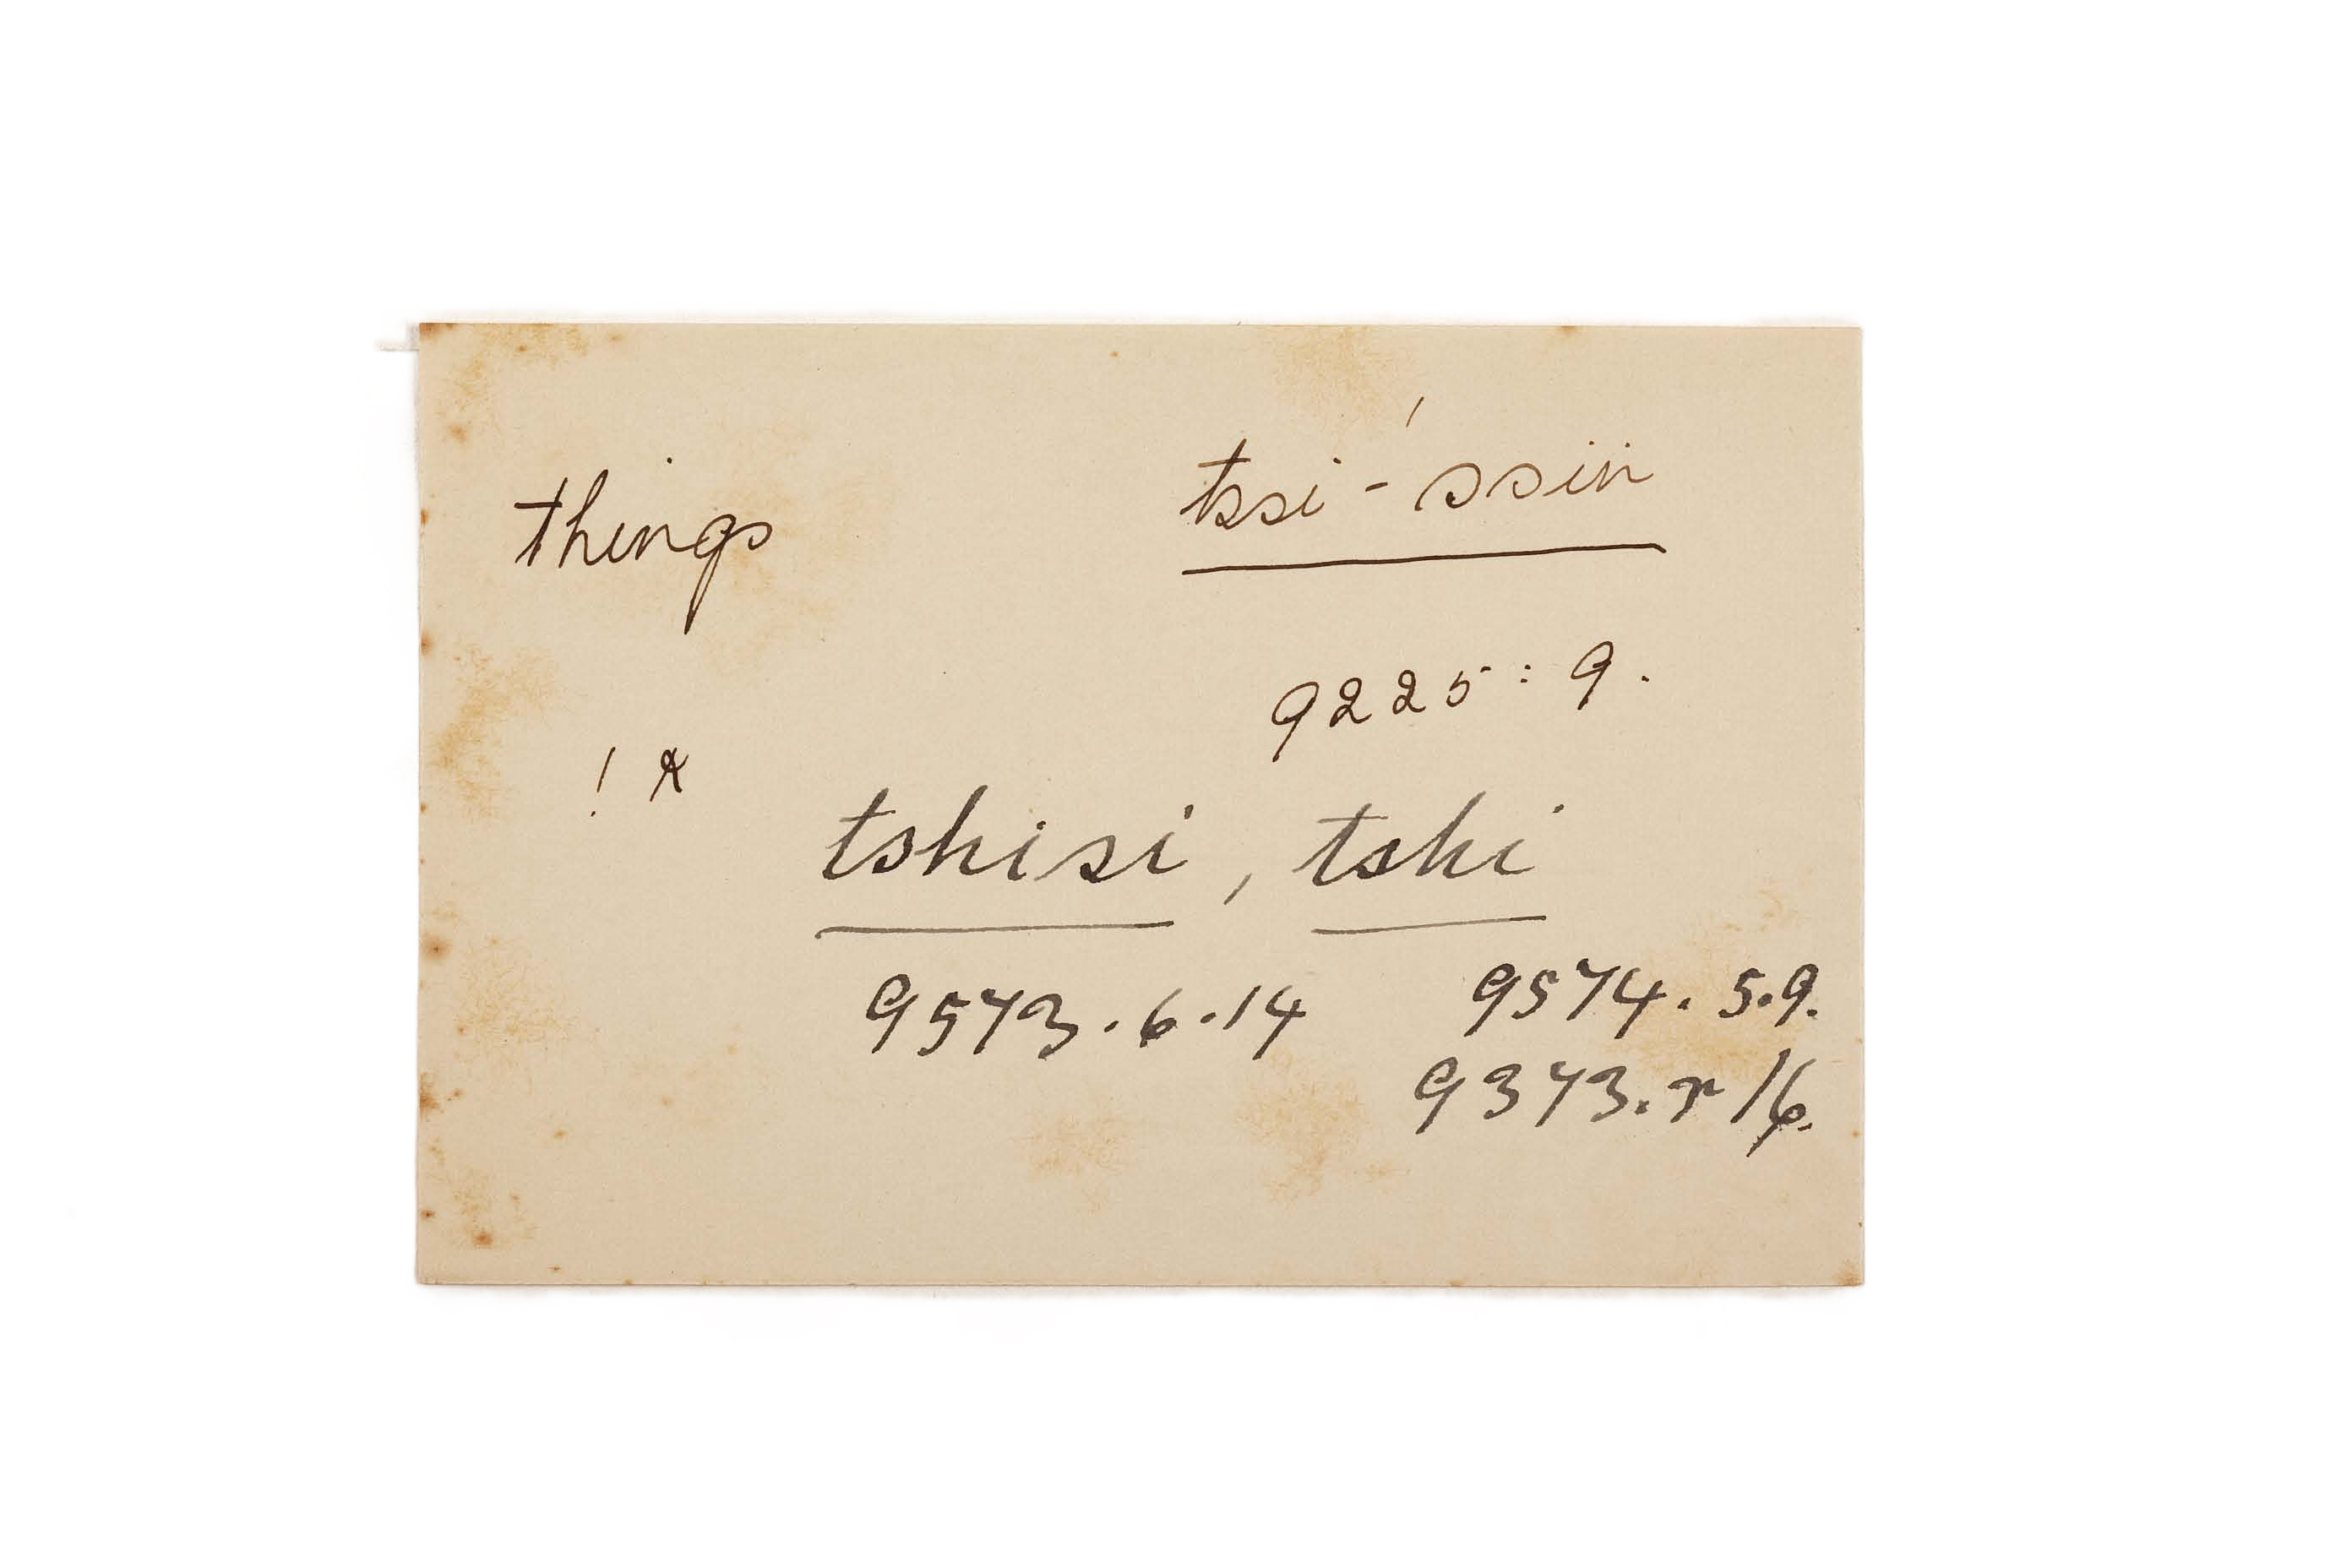 things tssi-ssin
9225: 9.
! k
tshisi, tshi
9573.6.14 9574. 5.9.
9373. r 16.